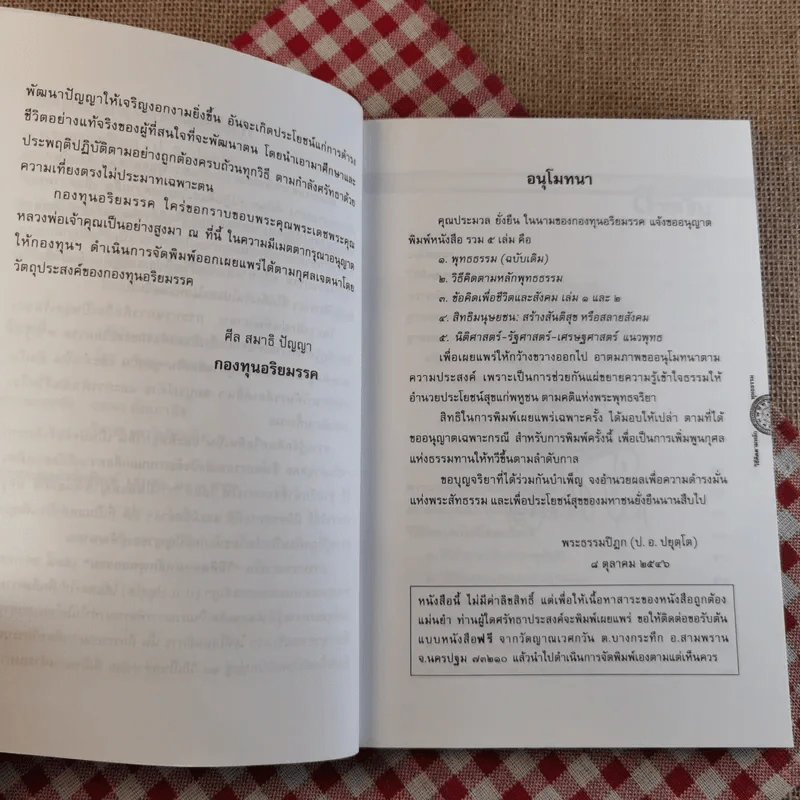 พัฒนาปัญญาให้เจริญงอกงามยิ่งขึ้น อันจะเกิดประโยชน์แก่การดำรง
ชีวิตอย่างแท้จริงของผู้ที่สนใจที่จะพัฒนาตน โดยนำเอามาศึกษาและ
ประพฤติปฏิบัติตามอย่างถูกต้องครบถ้วนทุกวิธี ตามกำลังศรัทธาด้วย
ความเที่ยงตรงไม่ประมาทเฉพาะตน
กองทุนอริยมรรค ใคร่ขอกราบขอบพระคุณพระเดชพระคุณ
หลวงพ่อเจ้าคุณเป็นอย่างสูงมา ณ ที่นี้ ในความมีเมตตากรุณาอนุญาต
ให้กองทุนฯ ดำเนินการจัดพิมพ์ออกเผยแพร่ได้ตามกุศลเจตนาโดย
วัตถุประสงค์ของกองทุนอริยมรรค
ศีล สมาธิ ปัญญา
กองทุนอริยมรรค
อนุโมทนา
คุณประมวล ยั่งยืน ในนามของกองทุนอริยมรรค แจ้งขออนุญาต
พิมพ์หนังสือ รวม ๕ เล่ม คือ
๑. พุทธธรรม (ฉบับเดิม)
๒. วิธีคิดตามหลักพุทธธรรม
๓. ข้อคิดเพื่อชีวิตและสังคม เล่ม ๑ และ ๒
๔. สิทธิมนุษยชน: สร้างสันติสุข หรือสลายสังคม
๕. นิติศาสตร์-รัฐศาสตร์-เศรษฐศาสตร์ แนวพุทธ
เพื่อเผยแพร่ให้กว้างขวางออกไป อาตมภาพขออนุโมทนาตาม
ความประสงค์ เพราะเป็นการช่วยกันแผ่ขยายความรู้เข้าใจธรรมให้
อำนวยประโยชน์สุขแก่พหูชน ตามคติแห่งพระพุทธจริยา
สิทธิในการพิมพ์เผยแพร่เฉพาะครั้ง ได้มอบให้เปล่า ตามที่ได้
ขออนุญาตเฉพาะกรณี สำหรับการพิมพ์ครั้งนี้ เพื่อเป็นการเพิ่มพูนกุศล
แห่งธรรมทานให้ทวีขึ้นตามลำดับกาล
ขอบุญจริยาที่ได้ร่วมกันบำเพ็ญ จงอำนวยผลเพื่อความดำรงมั่น
แห่งพระสัทธรรม และเพื่อประโยชน์สุขของมหาชนยั่งยืนนานสืบไป
พระธรรมปิฎก (ป. อ. ปยุตฺโต)
๘ ตุลาคม ๒๕๔๖
หนังสือนี้ ไม่มีค่าลิขสิทธิ์ แต่เพื่อให้เนื้อหาสาระของหนังสือถูกต้อง
แม่นยำ ท่านผู้ใดศรัทธาประสงค์จะพิมพ์เผยแพร่ ขอให้ติดต่อขอรับต้น
แบบหนังสือฟรี จากวัดญาณเวศกวัน ต.บางกระทึก อ.สามพราน
จ.นครปฐม ๗๓๒๑๐ แล้วนำไปดำเนินการจัดพิมพ์เองตามแต่เห็นควร